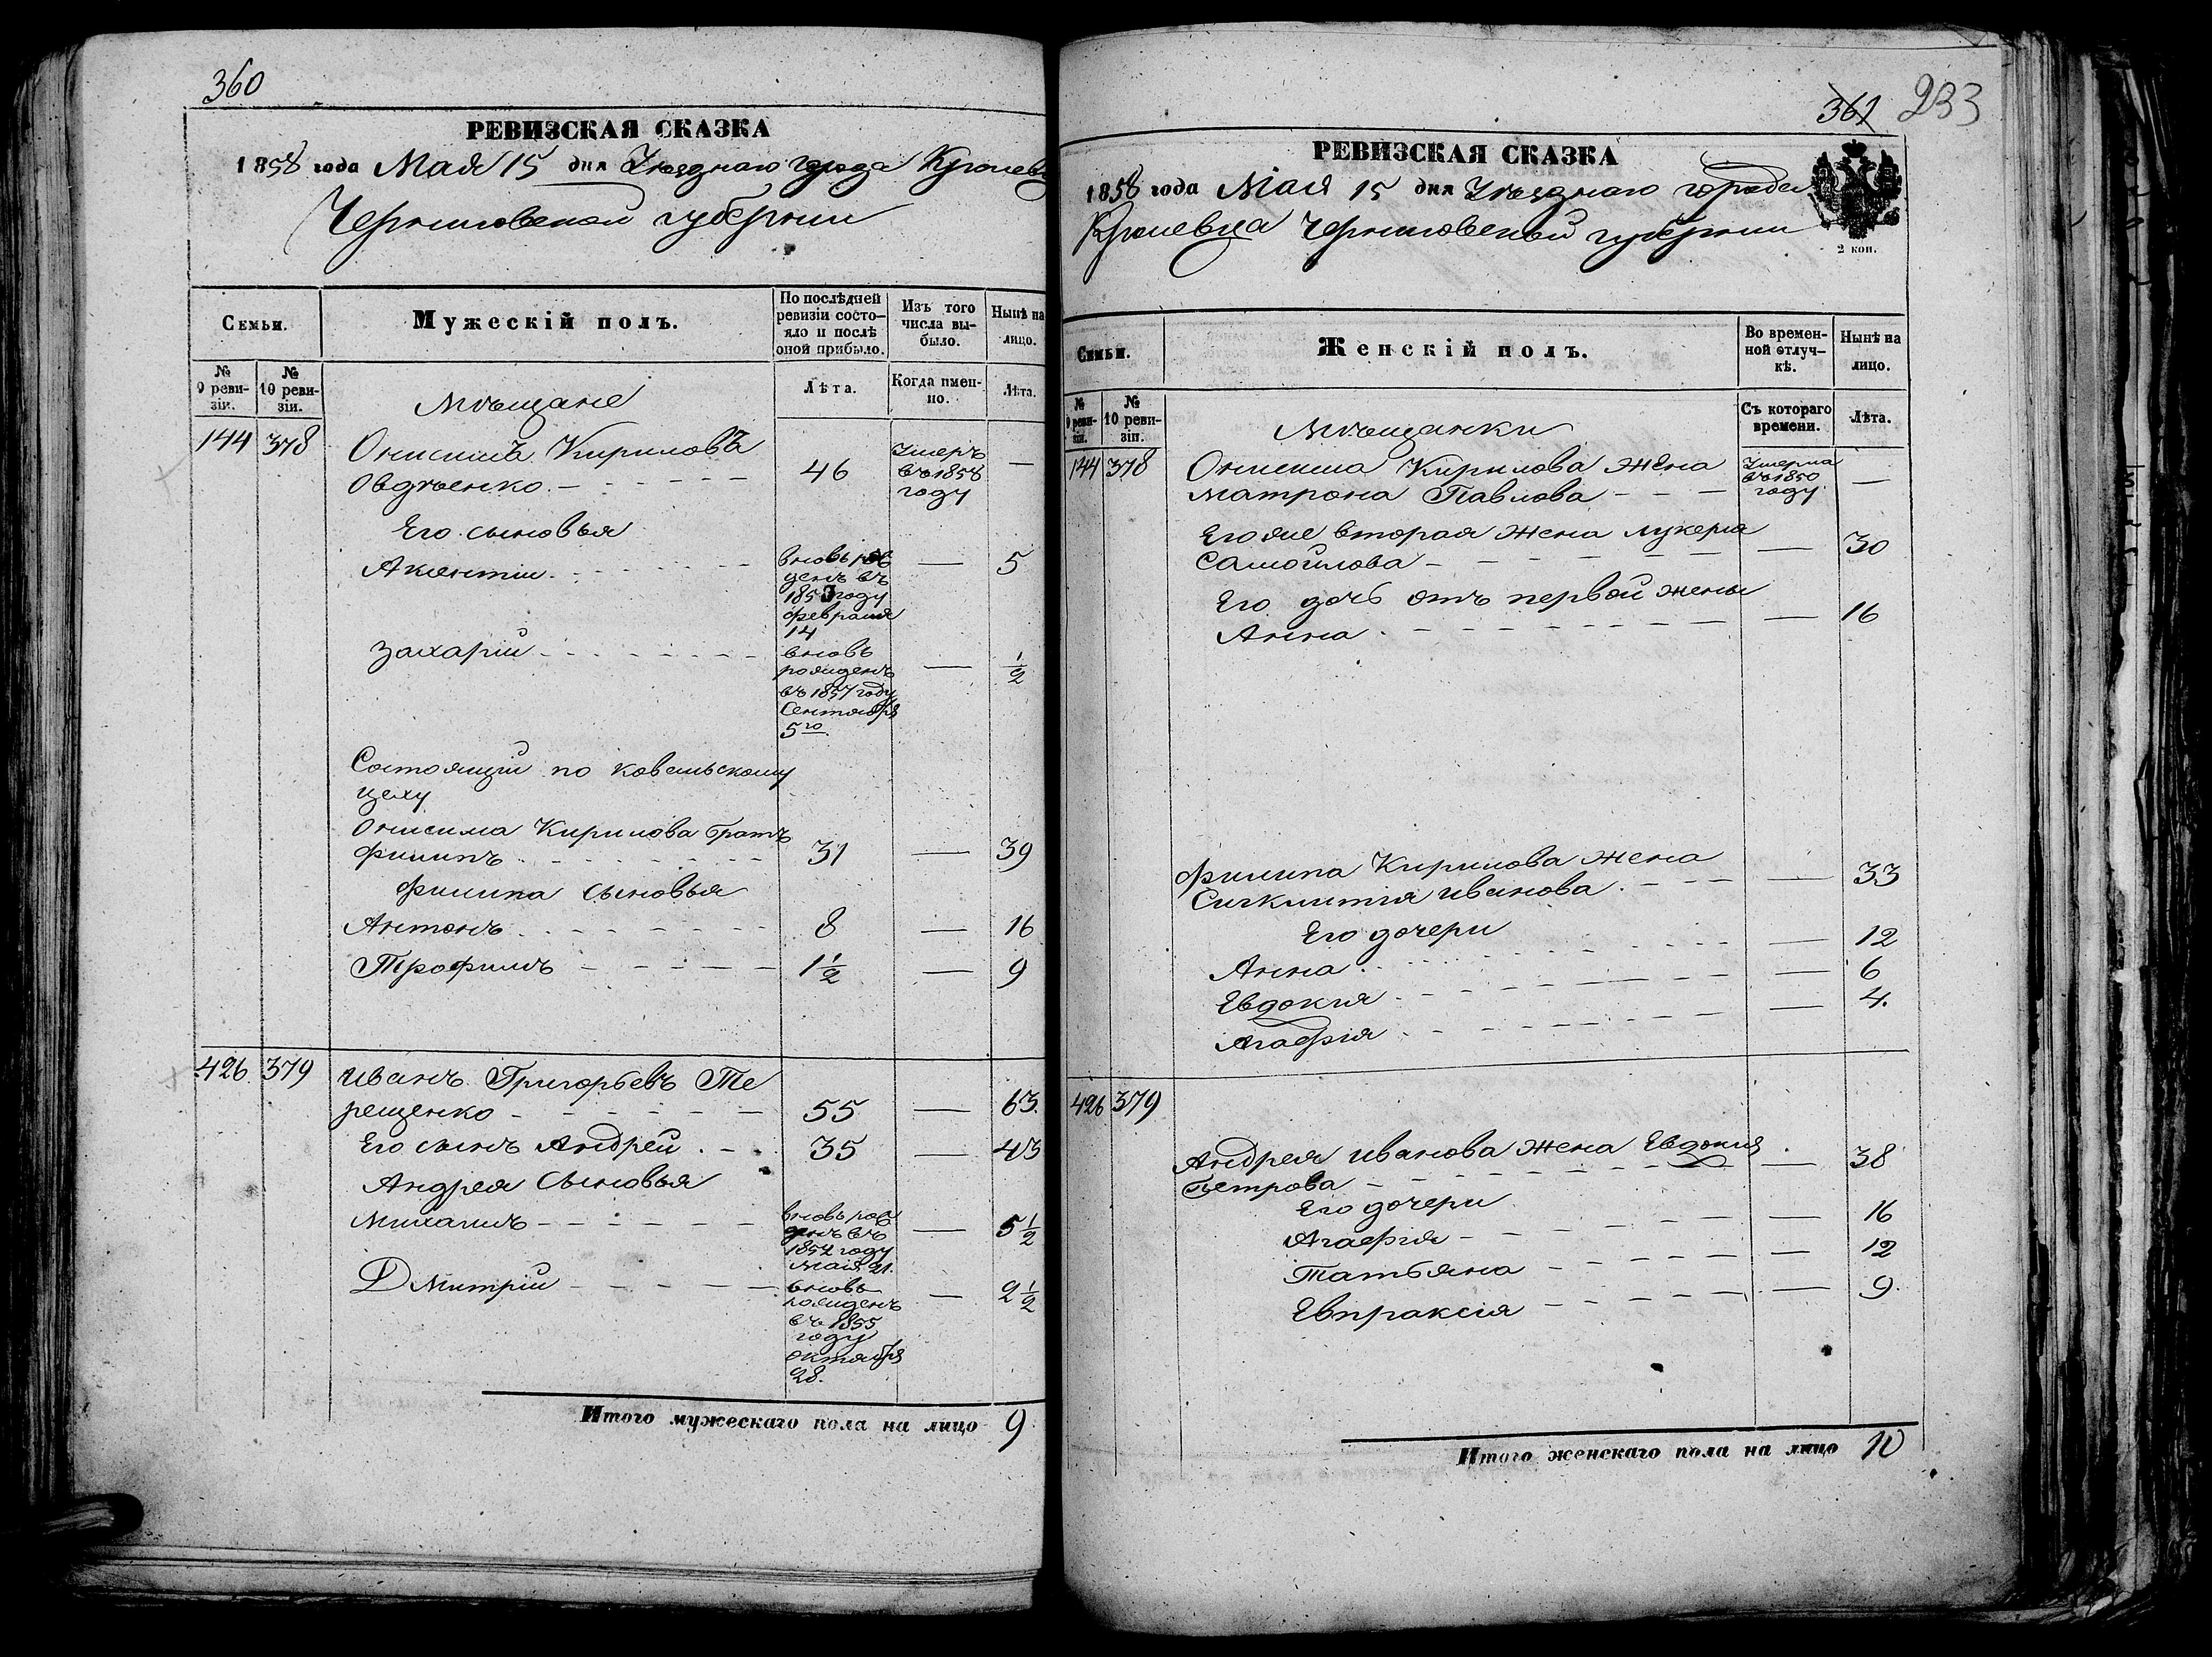 360
РЕВИЗСКАЯ СКАЗКА
1858 года Мая 15 дня Уѣзднаго города Кролевц
Черниговской губерніи
Семьи.
Мужескій полъ.
По послѣдней ревизіи состо-
яло и послѣ оной прибыло.
Изъ того числа вы-
было.
Нынѣ на лицо.
№ 9 реви-
зіи.
№ 10 реви-
зіи.
Мѣщане
Лѣта.
Когда имен-
но.
Лѣта.
144 378 Онисимъ Кириловъ
Овдѣенко 46 Умеръ въ 1858 году —
Его сыновья
Акентій вновь рож
денъ въ
1853 году
февраля
14 — 5
Захарій вновь
рожденъ
въ 1857 году
Сентября
5го — 1/2
Состоящій по ковальскому
цеху
Онисима Кирилова братъ
Филипъ 31 — 39
Филипа сыновья
Антонъ 8 — 16
Трофимъ 1 1/2 — 9
426 379 Иванъ Григорьевъ Те
рещенко 55 — 63.
Его сынъ Андрей 35 — 43
Андрея Сыновья
Михаилъ вновь рож
денъ въ
1852 году
Мая 21. — 5 1/2
Дмитрій вновь
рожденъ
въ 1855
году
октября
28. — 2 1/2
Итого мужескаго пола на лицо 9
361 233
РЕВИЗСКАЯ СКАЗКА
1858 года Маія 15 дня Уѣзднаго города
Кролевца Черниговской губерніи
2 коп.
Семьи.
Женскій полъ.
Во времен-
ной отлуч-
кѣ.
Нынѣ на лицо.
№ 9 реви-
зіи.
№ 10 реви-
зіи.
Мѣщанки
Съ котораго времени.
Лѣта.
144 378 Онисима Кирилова жена
Матрона Павлова Умерла въ 1850 году —
Его же вторая жена Лукерія
Самойлова — 30
Его дочь отъ первой жены
Анна — 16
Филипа Кирилова жена
Сигклитія Иванова — 33
Его дочери
Анна — 12
Евдокія — 6
Агафія — 4.
426 379
Андрея Иванова жена Евдокия
Петрова — 38
Его дочери
Агафія — 16
Татьяна — 12
Евпраксія — 9.
Итого женскаго пола на лицо 10